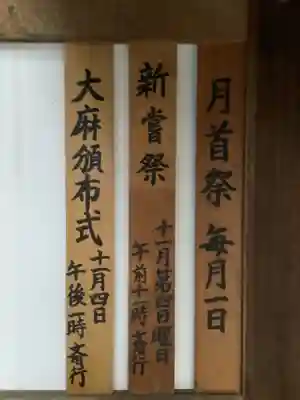 月首祭 毎月一日
新嘗祭
十一月第四日曜日
午前十一時斎行
大麻頒布式
十一月四日
午後一時斎行